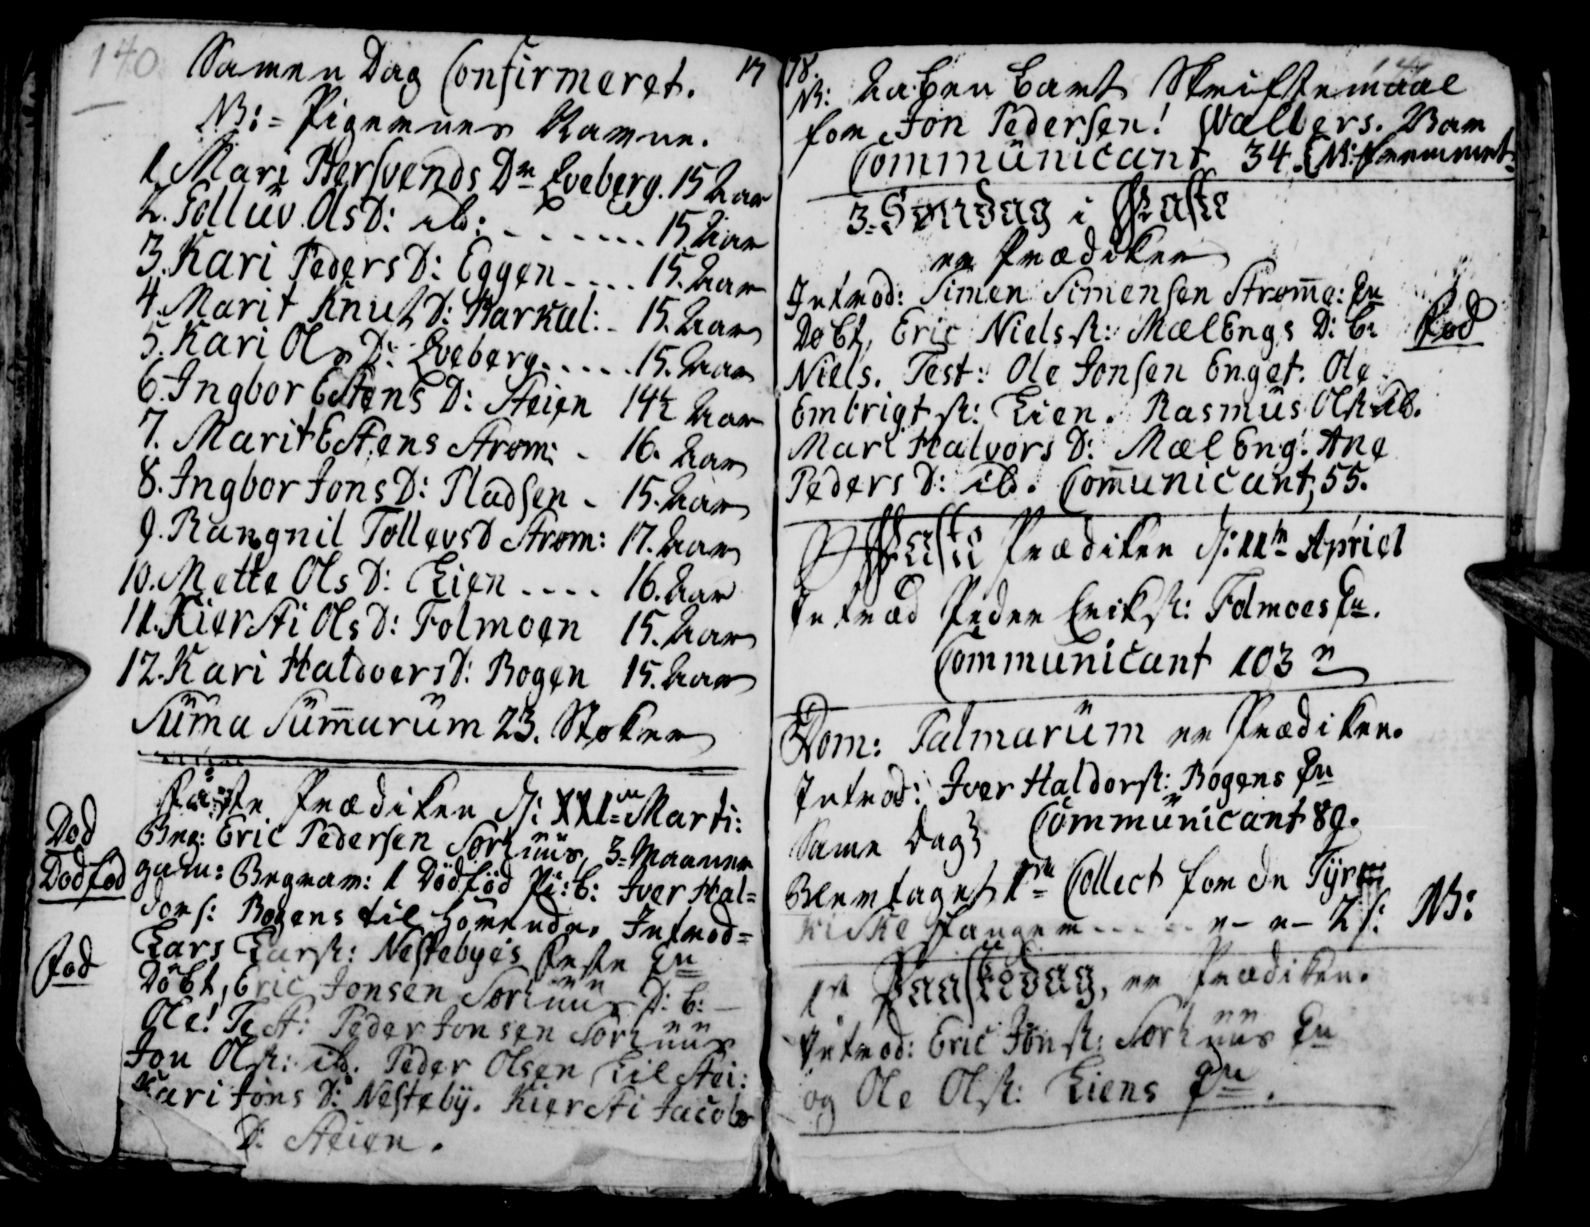 140.
Samen Dag Confirmeret. 17
NB: = Pigernes Navne.
1. Mari Hersvends Dr Eveberg. 15 Aar
2. Folluv Ols D: ib: - - - - - - 15 Aar
3. Kari Peders D: Eggen - - - - 15. Aar
4. Marit Knutz D: Harkal: - 15. Aar
5. Kari Ols D: Eveberg. - - - - - 15. Aar
6. Ingbor Estens D: Steien 14½ Aar
7. Marit Estens Strøm: - 16. Aar
8. Ingbor Jons D: Pladsen - 15. Aar
9. Rangnil Tollevs D Strøm: 17. Aar
10. Mette Ols D: Lien - - - - 16. Aar
11. Kiersti Ols D: Folmoen 15. Aar
12. Kari Haldoers D: Bogen 15. Aar
Suma Sumarum 23. Støker
Faste Prædiken d: XXI Marti:
Død Begr: Eric Pedersen Sorhuus, 3 = Maaneder
Dødfød gam: Begrav: 1 Dødfød Pi: b: Iver Hal=
dors: Bogens til Introd=
Fød Lars Lars: Nestebyes Første
Døbt, Eric Jonsen Sorhuus D: b: —
Ole! Test: Peder Jonsen Sorhuus
Jon Ols: ib. Peder Olsen Lil Stei:
Kari Jons D: Nesteby. Kiersti Jacobs
D: Steien.
18.
NB: Aabenbart Skriftemaal
for Jon Pedersen! Walbers. Var
Communicant 34.
3. Søndag i Faste
er Prædiken
Introd: Simen Simensen Strøme:
Døbt, Eric Niels: MælEngs D: b: Fød
Niels. Test: Ole Jonsen Enget. Ole
Embrigt: Lien. Rasmus Ols: ib.
Mari Halvors D: MælEng: Ane
Peders D: ib. Communicant, 55.
Faste Prædiken d: 11te April
Introd Peder Erik: Folmoes
Communicant 103
Dom: Palmarum er Prædiken.
Introd: Iver Haldors: Bogens
Same Dag Communicant 89.
Blev taget Collect for de Tyr
kiske Fanger - - - - - 2 : NB:
1ste Paaskedag, er Prædiken.
Introd: Eric Jons: Sorhuus
og Ole Ols: Liens